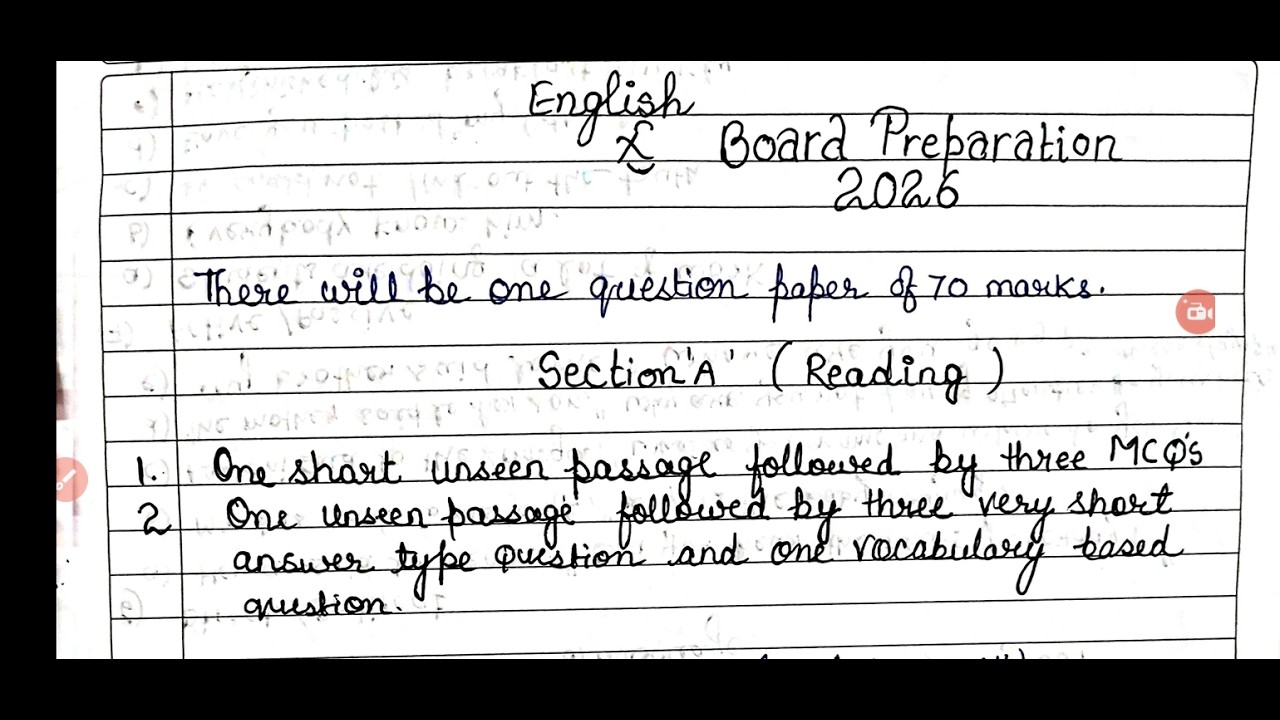 English
X Board Preparation
2026
There will be one question paper of 70 marks.
Section 'A' (Reading)
1. One short unseen passage followed by three MCQ's
2 One unseen passage followed by three very short
answer type question and one vocabulary based
question.